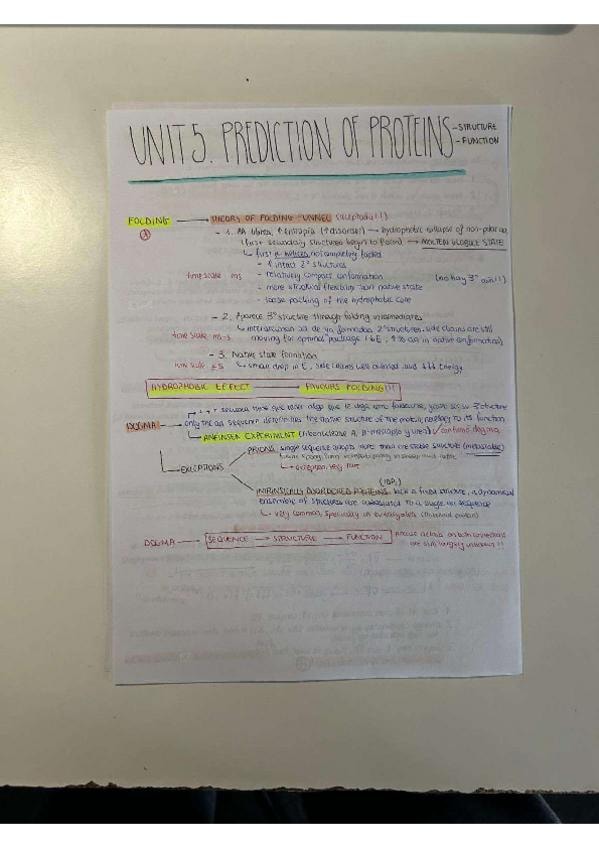 UNIT 5. PREDICTION OF PROTEINS - STRUCTURE
- FUNCTION
FOLDING → THEORY OF FOLDING FUNNEL
- 1. AA libres, ↑ entropia (↑ disorder) → hydrophobic collapse of non-polar aa
(first secondary structures begin to form) → MOLTEN GLOBULE STATE
↳ first α-helices, not completely folded
- intact 2º structures
time scale ms - relatively compact conformation (no hay 3º aun!!)
- more structural flexibility than native state
- loose packing of the hydrophobic core
- 2. Aparece 3º structure through folding intermediates
time scale ms-s ↳ ya formadas 2º structures, side chains are still
moving for optimal package ↓E, ↑% aa in native conformation)
- 3. Native state formation
time scale ↳ small drop in E, side chains well ordered and ↓↓↓ energy
HYDROPHOBIC EFFECT → FAVOURS FOLDING!!
DOGMA
only the aa sequence determines the native structure of the protein, relating to its function
ANFINSEN EXPERIMENT (ribonuclease A, β-mercapto y urea) ✓ confirms dogma
EXCEPTIONS
PRIONS: single sequence adopts more than one stable structure (metastable)
↳ very rare
(IDP)
INTRINSICALLY DISORDERED PROTEINS: lack a fixed structure, a dynamical
ensemble of structures are associated to a single aa sequence
↳ very common, specially in eukaryotes
DOGMA → SEQUENCE → STRUCTURE → FUNCTION precise details on both connections
are still largely unknown!!